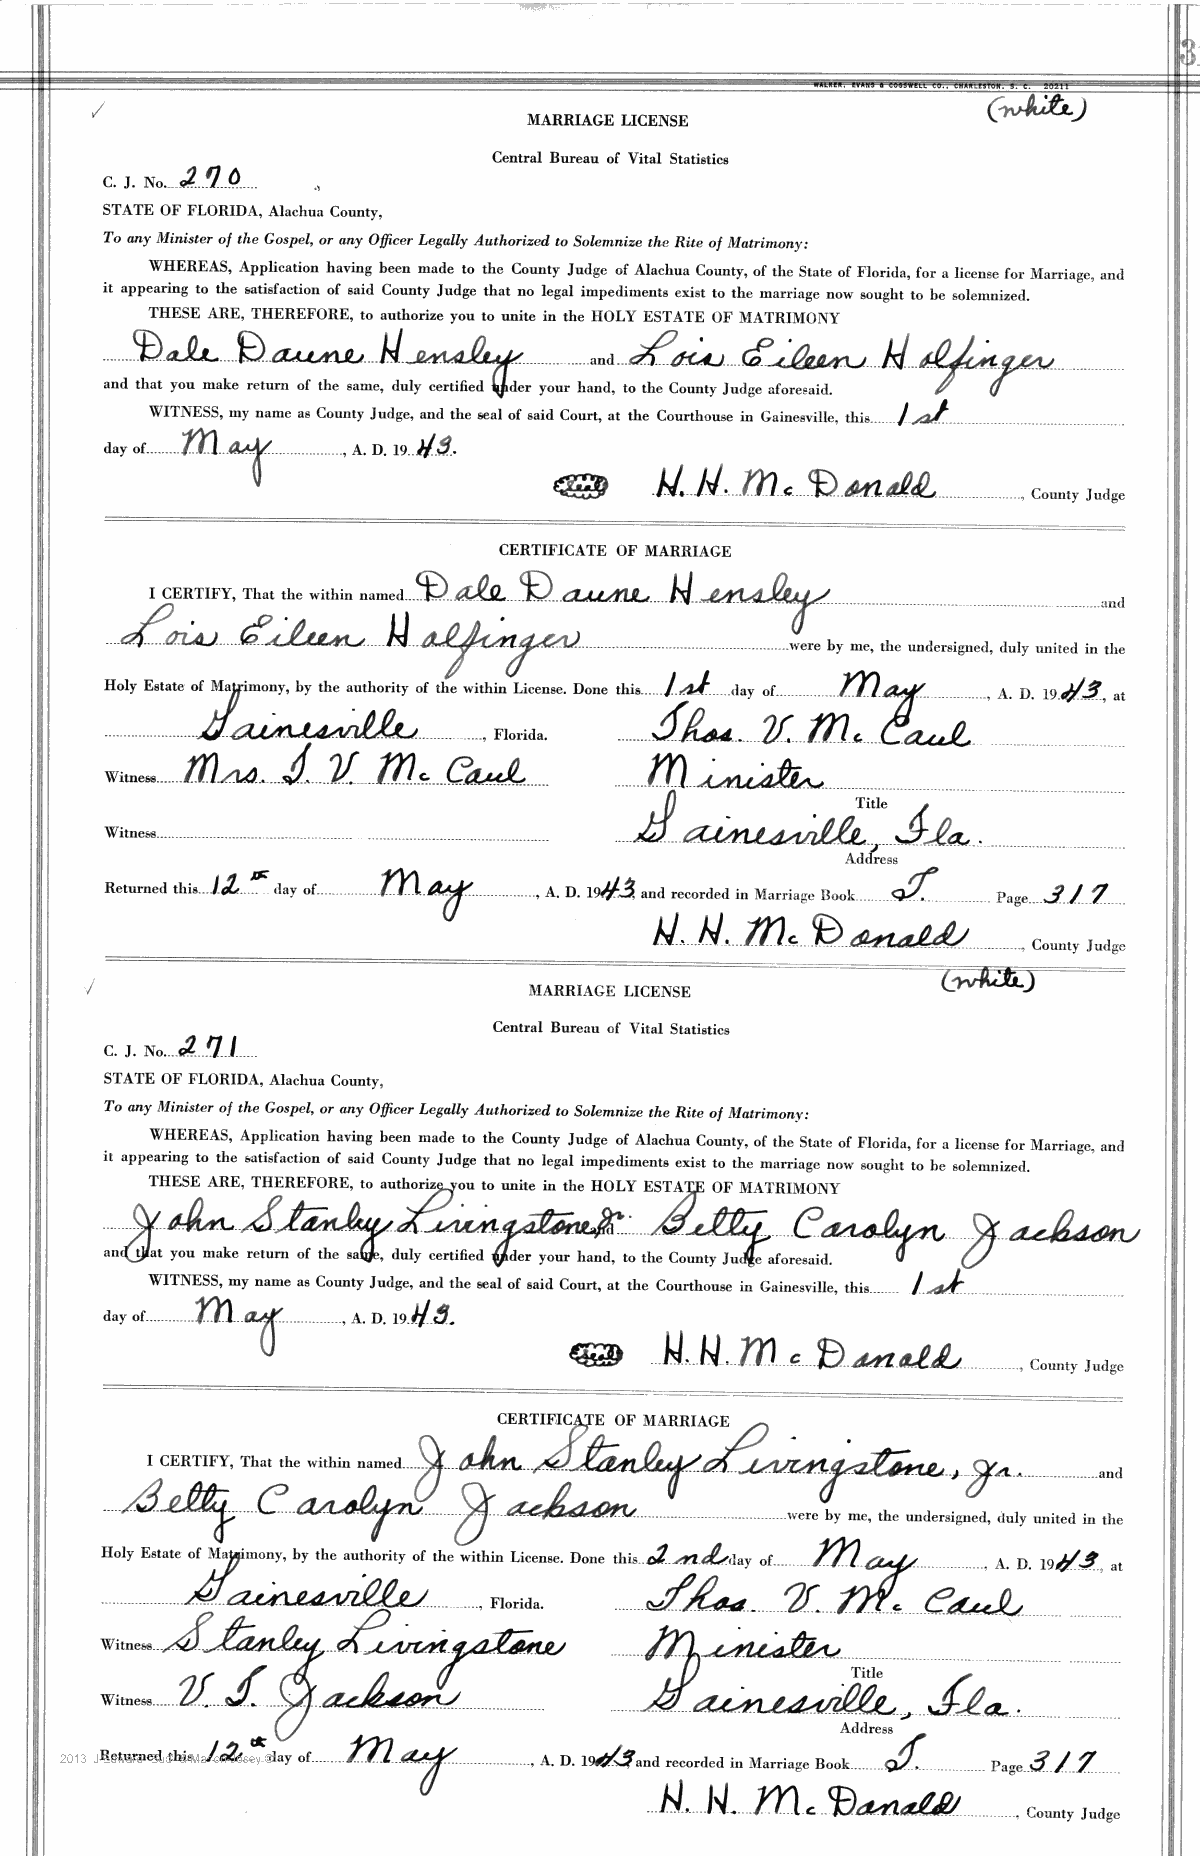 3
WALKER, EVANS & COGSWELL CO., CHARLESTON, S. C. 20211
(white)
MARRIAGE LICENSE
Central Bureau of Vital Statistics
C. J. No. 270
STATE OF FLORIDA, Alachua County,
To any Minister of the Gospel, or any Officer Legally Authorized to Solemnize the Rite of Matrimony:
WHEREAS, Application having been made to the County Judge of Alachua County, of the State of Florida, for a license for Marriage, and
it appearing to the satisfaction of said County Judge that no legal impediments exist to the marriage now sought to be solemnized.
THESE ARE, THEREFORE, to authorize you to unite in the HOLY ESTATE OF MATRIMONY
Dale Daune Hensley and Lois Eileen Holfinger
and that you make return of the same, duly certified under your hand, to the County Judge aforesaid.
WITNESS, my name as County Judge, and the seal of said Court, at the Courthouse in Gainesville, this 1st
day of May, A. D. 1943.
Seal H. H. McDonald, County Judge
CERTIFICATE OF MARRIAGE
I CERTIFY, That the within named Dale Daune Hensley and
Lois Eileen Holfinger were by me, the undersigned, duly united in the
Holy Estate of Matrimony, by the authority of the within License. Done this 1st day of May, A. D. 1943, at
Gainesville, Florida. Thos. V. McCaul
Witness Mrs. T. V. McCaul Minister
Title
Witness Gainesville, Fla.
Address
Returned this 12th day of May, A. D. 1943 and recorded in Marriage Book T. Page 317
H. H. McDonald, County Judge
(white)
MARRIAGE LICENSE
Central Bureau of Vital Statistics
C. J. No. 271
STATE OF FLORIDA, Alachua County,
To any Minister of the Gospel, or any Officer Legally Authorized to Solemnize the Rite of Matrimony:
WHEREAS, Application having been made to the County Judge of Alachua County, of the State of Florida, for a license for Marriage, and
it appearing to the satisfaction of said County Judge that no legal impediments exist to the marriage now sought to be solemnized.
THESE ARE, THEREFORE, to authorize you to unite in the HOLY ESTATE OF MATRIMONY
John Stanley Livingstone, Jr. and Betty Carolyn Jackson
and that you make return of the same, duly certified under your hand, to the County Judge aforesaid.
WITNESS, my name as County Judge, and the seal of said Court, at the Courthouse in Gainesville, this 1st
day of May, A. D. 1943.
Seal H. H. McDonald, County Judge
CERTIFICATE OF MARRIAGE
I CERTIFY, That the within named John Stanley Livingstone, Jr. and
Betty Carolyn Jackson were by me, the undersigned, duly united in the
Holy Estate of Matrimony, by the authority of the within License. Done this 2nd day of May, A. D. 1943, at
Gainesville, Florida. Thos. V. McCaul
Witness Stanley Livingstone Minister
Title
Witness V. T. Jackson Gainesville, Fla.
Address
Returned this 12th day of May, A. D. 1943 and recorded in Marriage Book T. Page 317
2013
H. H. McDonald, County Judge